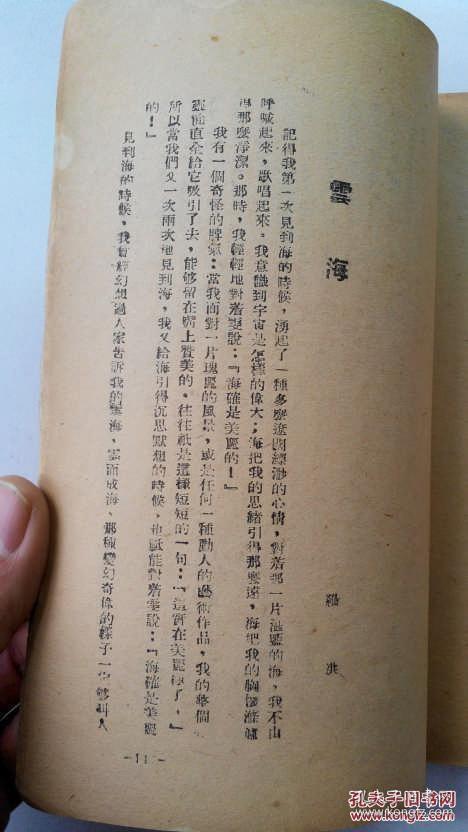 雲海
羅洪
記得我第一次見到海的時候，湧起了一種多麼遼闊縹渺的心情，對着那一片湛藍的海，我不由
呼喊起來，歌唱起來。我意識到宇宙是怎樣的偉大；海把我的思緒引得那麼遠，海把我的胸懷滌盪
得那麼淨潔。那時，我輕輕地對着雯說：『海確是美麗的！』
我有一個奇怪的脾氣：當我面對一片瑰麗的風景，或是任何一種動人的藝術作品，我的整個
靈魂直全給它吸引了去，能够留在嘴上贊美的，往往祇是這樣短短的一句：『這實在美麗極了。』
所以當我們又一次兩次地見到海，我又給海引得沉思默想的時候，也祇能對着雯說：『海確是美麗
的！』
見到海的時候，我曾經幻想過人家告訴我的雲海，雲而成海，那種變幻奇像的樣子一定够叫人
-11-
孔夫子旧书网